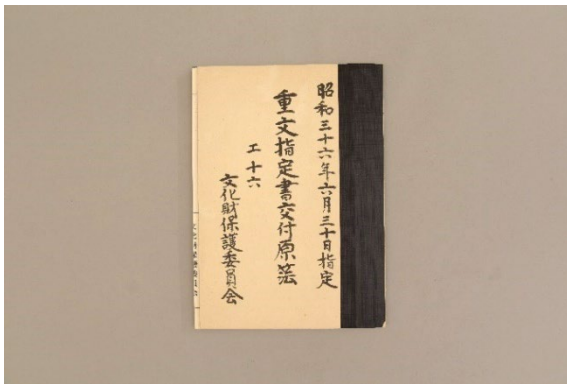 昭和三十六年六月三十日指定
重文指定書交付原簿
工十六
文化財保護委員会